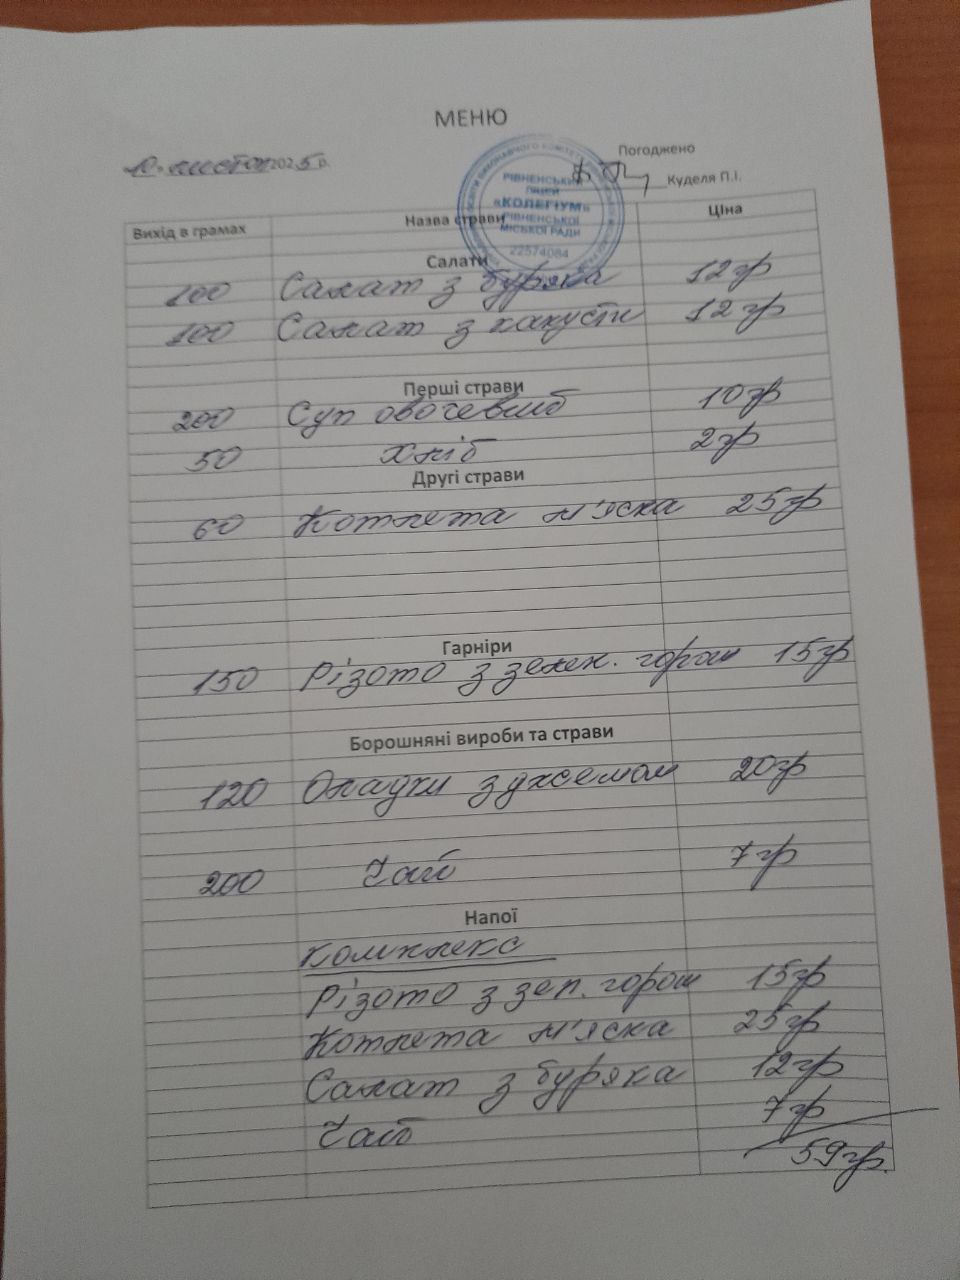 МЕНЮ
10 листоп 2025 р.
Погоджено
Куделя П.І.
РІВНЕНСЬКИЙ
ЛІЦЕЙ
«КОЛЕГІУМ»
РІВНЕНСЬКОЇ
МІСЬКОЇ РАДИ
22574084
Вихід в грамах Назва страви Ціна
Салати
100 Салат з буряка 12гр
100 Салат з капусти 12гр
Перші страви
200 Суп овочевий 10гр
50 Хліб 2гр
Другі страви
60 Котлета м'яска 25гр
Гарніри
150 Різото з зелен. горош 15гр
Борошняні вироби та страви
120 Оладки з джемом 20гр
200 Чай 7гр
Напої
Комплекс
Різото з зел. горош 15гр
Котлета м'яска 25гр
Салат з буряка 12гр
Чай 7гр
59гр.